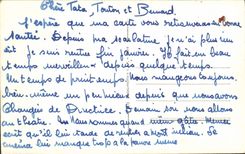 Chère Tata Tonton et Bernard.
J'espère que ma carte vous retrouvera en bonne
santée. Depuis ma scarlatine j'en ai plus rien
et je suis rentré fin Janvier. Il fait un beau
temps merveilleux depuis quelque temps.
Un temps de printemps. Nous mangeons toujours
bien. même un peu mieux depuis que nous avons
changés de Directrice. Demain soir nous allons
au théatre. Nous sommes quand même gâtés. Mémé
écrit qu'il lui tarde de
cuisine lui manque